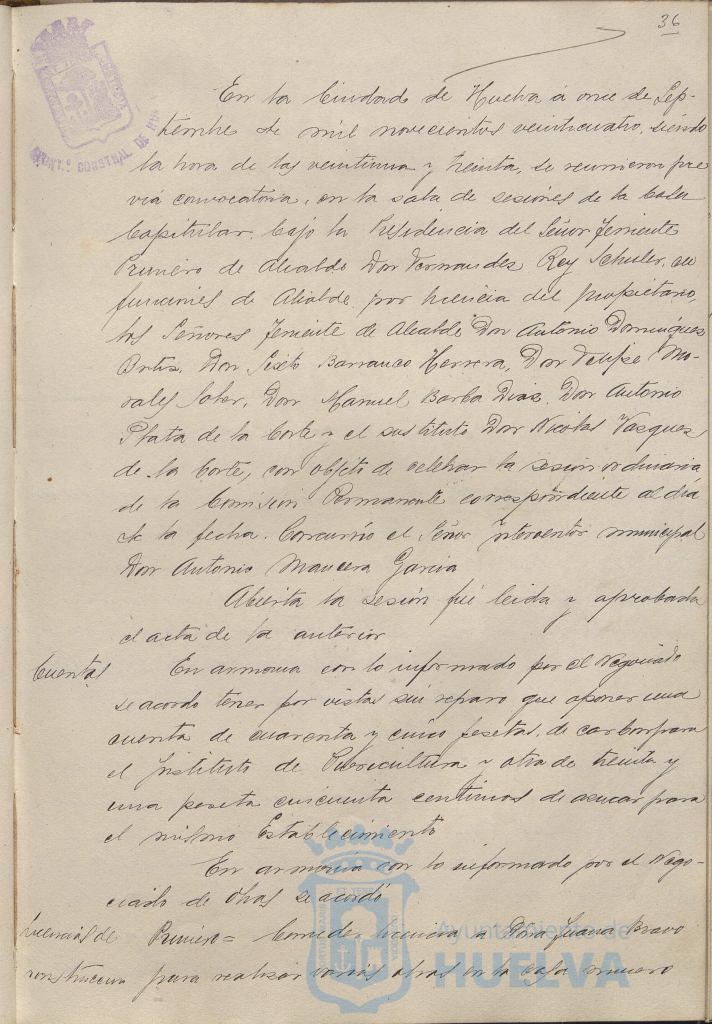 36
En la Ciudad de Huelva á once de Sep-
tiembre de mil novecientos veinticuatro, siendo
la hora de las veintiuna y treinta, se reunieron pre
via convocatoria, en la sala de sesiones de la Casa
Capitular, bajo la Presidencia del Señor Teniente
Primero de Alcalde Don Fernandez Rey Schuler, en
funciones de Alcalde por licencia del propietario,
los Señores Teniente de Alcalde Don Antonio Dominguez
Ortis, Don Sixto Barranco Herrera, Don Felipe Mo-
rales Soler, Don Manuel Barba Diaz, Don Antonio
Plata de la Corte y el sustituto Don Nicolas Vasquez
de la Corte, con objeto de celebrar la sesion ordinaria
de la Comisión Permanente correspondiente al día
de la fecha. Concurrió el Señor Interventor municipal
Don Antonio Mancera Garcia
Abierta la sesión fué leida y aprobada
el acta de la anterior
Cuentas
En armonia con lo informado por el Negociado
se acordo tener por vistas sin reparo que oponer una
cuenta de cuarenta y cinco pesetas, de carbon para
el Instituto de Puericultura y otra de treinta y
una peseta cincuenta centimos de azucar para
el mismo Establecimiento
En armonia con lo informado por el Nego-
ciado de Obras se acordó
Licencias de
construccion
Primero = Conceder licencia a Doña Juana Bravo
para realizar varias obras en la casa numero
Ayuntamiento de
HUELVA